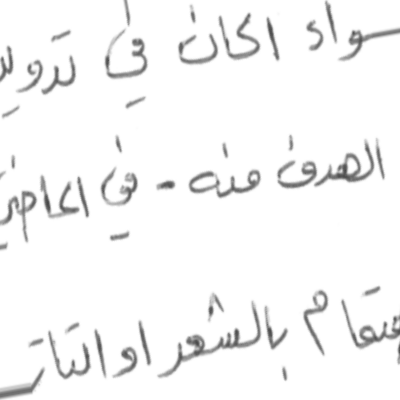 سواء اكان في تدوين
الهدف منه - في الحاضر
هتمام بالشعر او التار